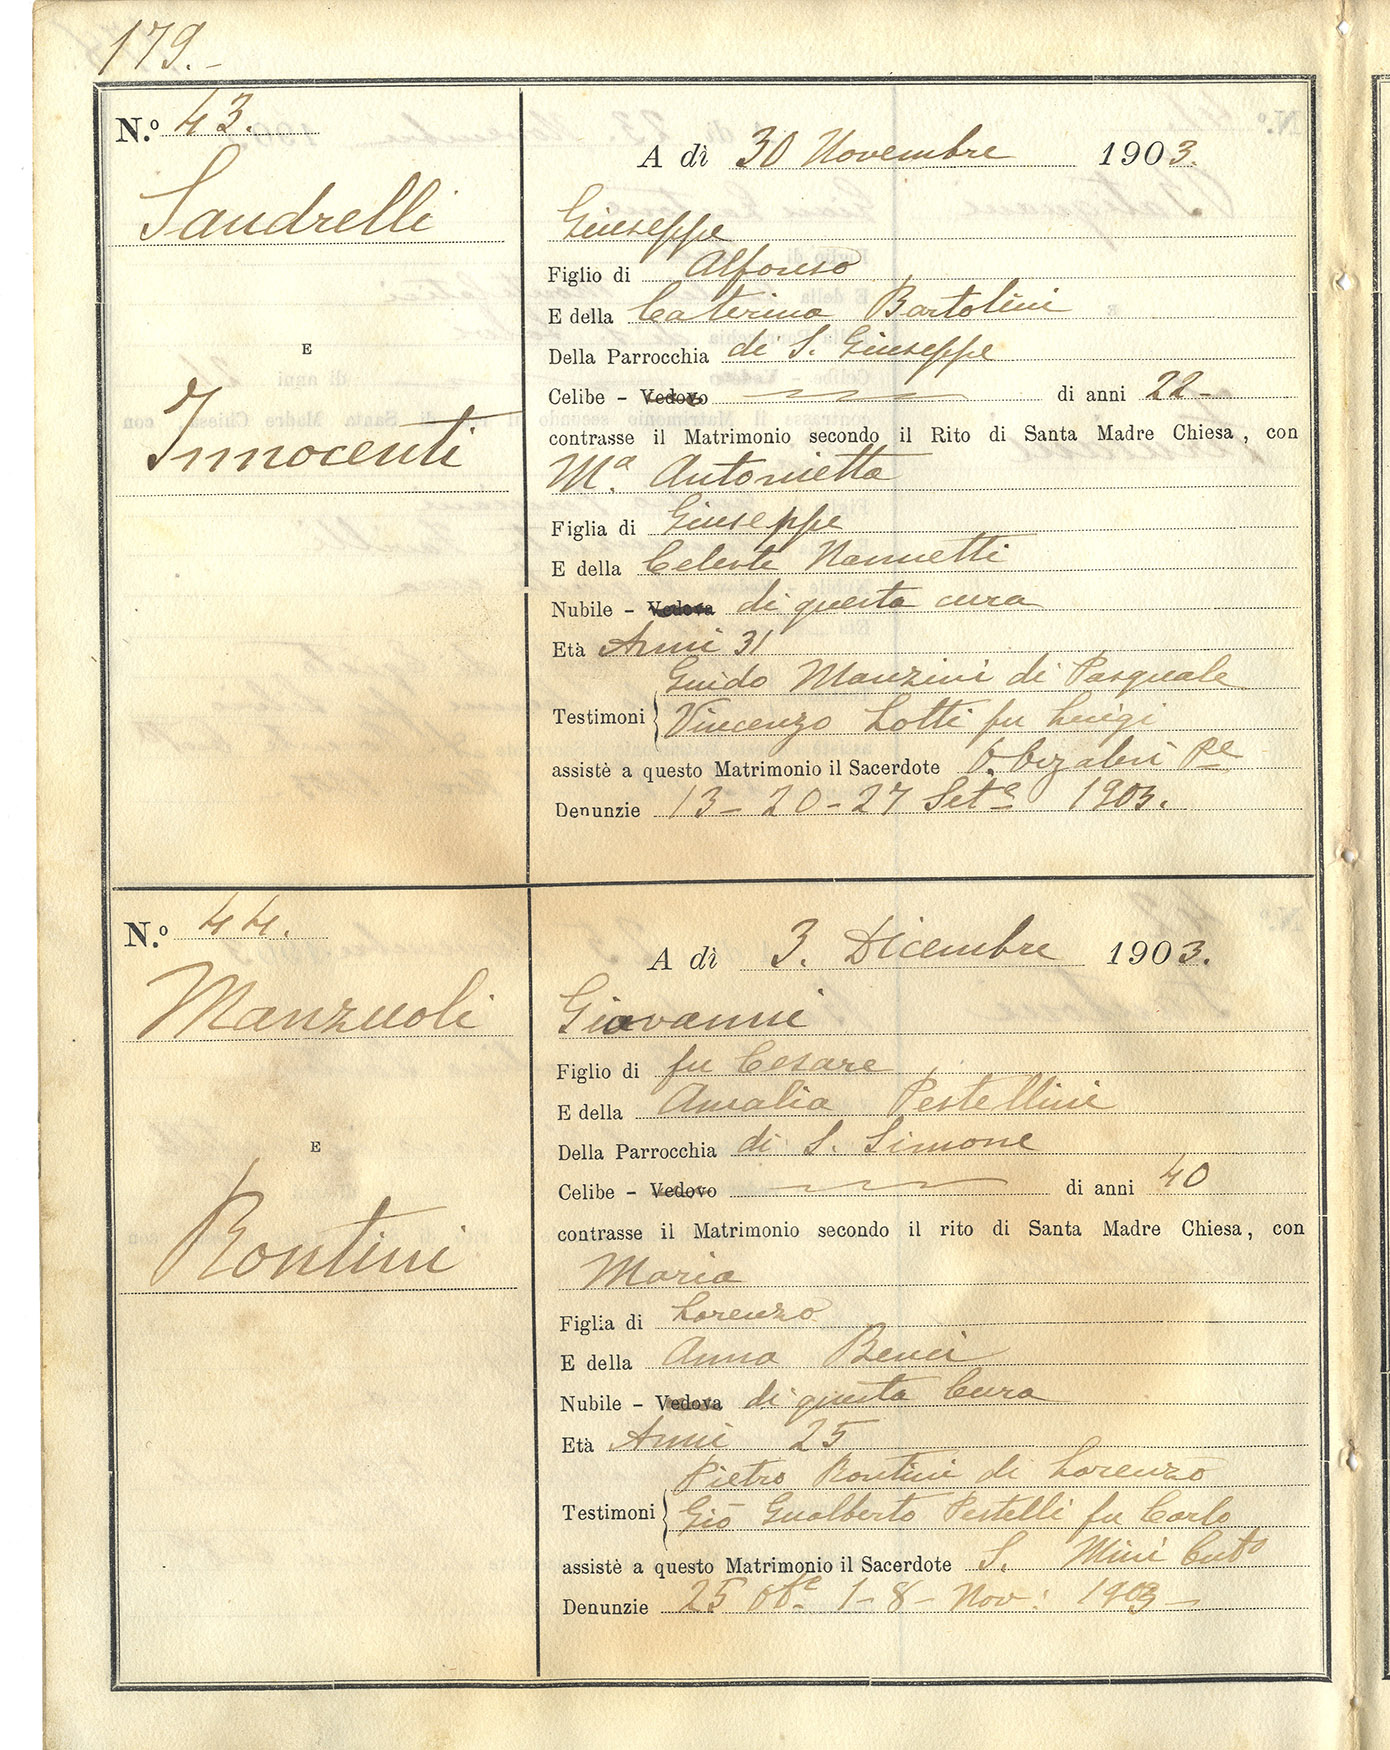 179.-
N.º 43.
Sandrelli
E
Innocenti
A dì 30 Novembre 1903.
Giuseppe
Figlio di Alfonso
E della Caterina Bartolini
Della Parrocchia di S. Giuseppe
Celibe - Vedovo di anni 22-
contrasse il Matrimonio secondo il Rito di Santa Madre Chiesa, con
Mª. Antonietta
Figlia di Giuseppe
E della Celeste Nannetti
Nubile - Vedova di questa cura
Età Anni 31
Guido Manzini di Pasquale
Testimoni Vincenzo Lotti fu Luigi
assistè a questo Matrimonio il Sacerdote
Denunzie 13- 20-27 Set.e 1903.
N.º 44.
Manzuoli
E
Rontini
A dì 3. Dicembre 1903.
Giovanni
Figlio di fu Cesare
E della Amalia Pestellini
Della Parrocchia di S. Simone
Celibe - Vedovo di anni 40
contrasse il Matrimonio secondo il rito di Santa Madre Chiesa, con
Maria
Figlia di Lorenzo
E della Anna Benci
Nubile - Vedova di questa Cura
Età Anni 25
Pietro Rontini di Lorenzo
Testimoni Gio Gualberto Pestelli fu Carlo
assistè a questo Matrimonio il Sacerdote S. Mini Cur.to
Denunzie 25 Ob.e 1-8- Nov: 1903-